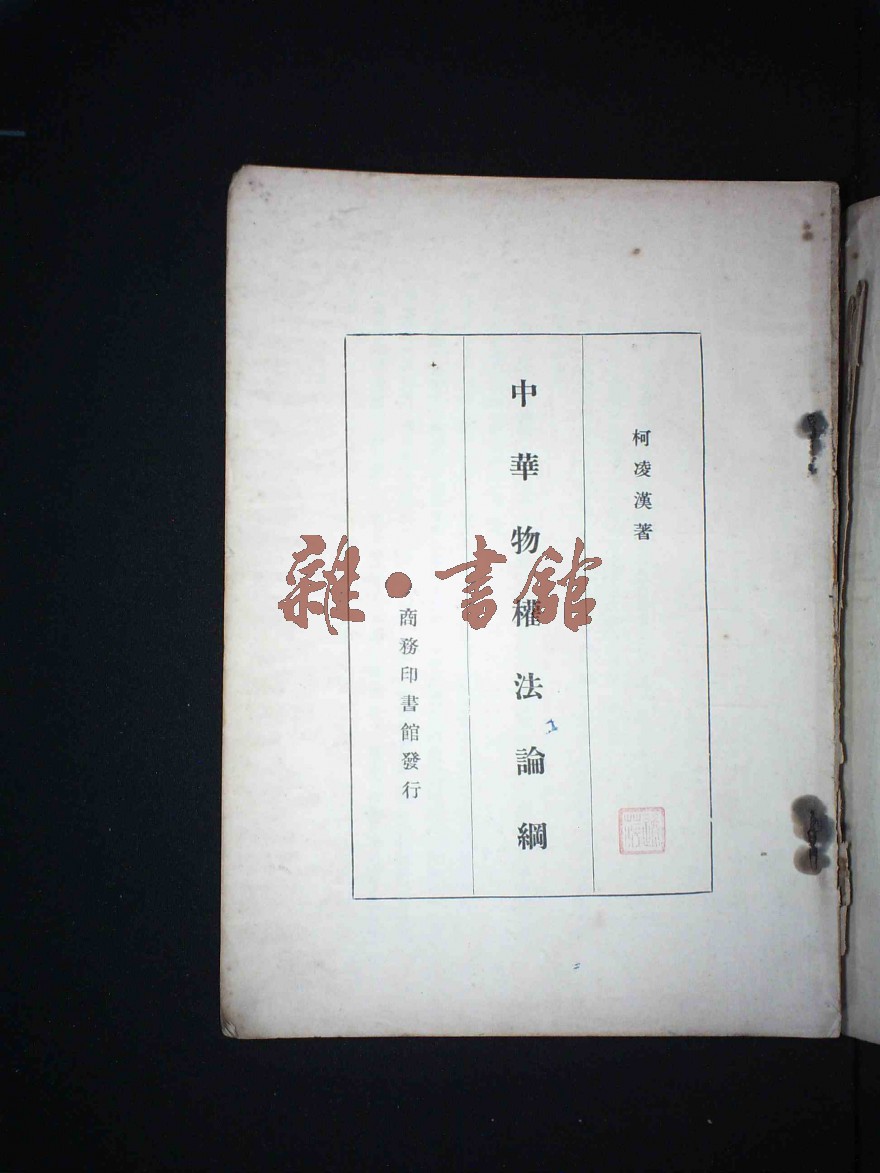 柯凌漢著
中華物權法論綱
商務印書館發行
雜·書館